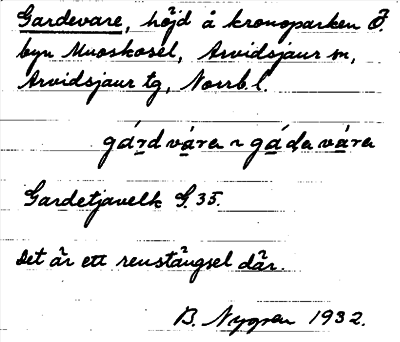 Gardevare, höjd å kronoparken Ö.
byn Muoskosel, Arvidsjaur sn,
Arvidsjaur tg, Norrb. l.
gárd vára ~ gáda vára
Gardetjavelk G. 35.
Det är ett renstängsel där.
B. Nygren 1932.